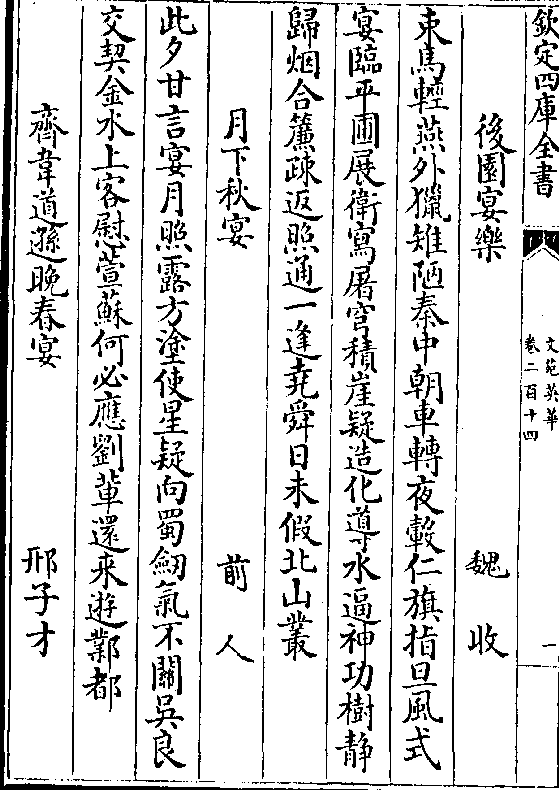 欽定四庫全書
文苑英華
卷二百十四
一
後園宴樂 魏收
束馬輕燕外獵雉陋秦中朝車轉夜轂仁旗指旦風式
宴臨平圃展衛寫屠穹積崖疑造化導水逼神功樹静
歸烟合簾疎返照通一逢堯舜日未假北山叢
月下秋宴 前人
此夕甘言宴月照露方塗使星疑向蜀劒氣不關吳良
交契金水上客慰萱蘇何必應劉軰還来遊鄴都
齊韋道遜晚春宴 邢子才